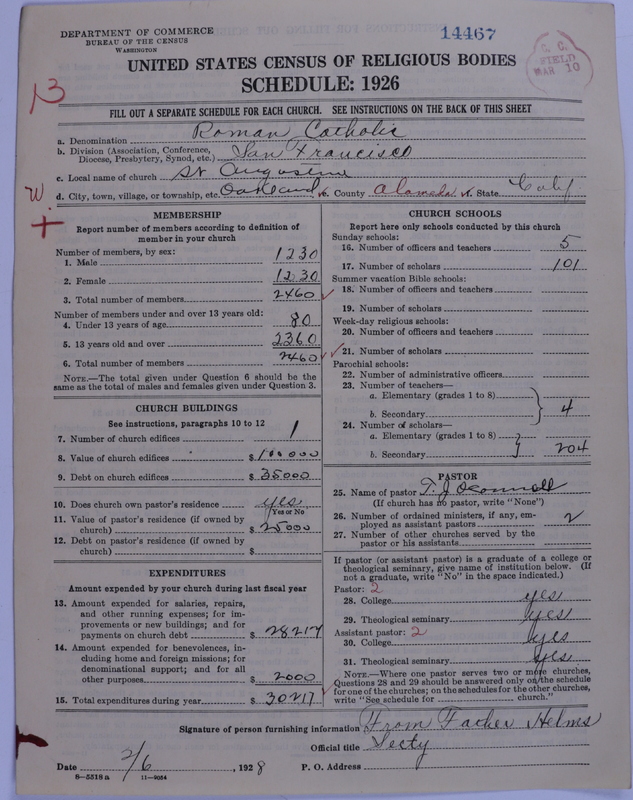 DEPARTMENT OF COMMERCE
BUREAU OF THE CENSUS
WASHINGTON
14467
C. C.
FIELD
MAR 10
UNITED STATES CENSUS OF RELIGIOUS BODIES
SCHEDULE: 1926
FILL OUT A SEPARATE SCHEDULE FOR EACH CHURCH. SEE INSTRUCTIONS ON THE BACK OF THIS SHEET
a. Denomination Roman Catholic
b. Division (Association, Conference, Diocese, Presbytery, Synod, etc.) San Francisco
c. Local name of church St Augustine
W.
d. City, town, village, or township, etc. Oakland e. County Alameda f. State Calif
MEMBERSHIP
Report number of members according to definition of
member in your church
Number of members, by sex:
1. Male 1230
2. Female 1230
3. Total number of members 2460
Number of members under and over 13 years old:
4. Under 13 years of age 80
5. 13 years old and over 2360
6. Total number of members 2460
NOTE.—The total given under Question 6 should be the
same as the total of males and females given under Question 3.
CHURCH BUILDINGS
See instructions, paragraphs 10 to 12
7. Number of church edifices 1
8. Value of church edifices $100000
9. Debt on church edifices $35000
10. Does church own pastor's residence yes
(Yes or No)
11. Value of pastor's residence (if owned by
church) $25000
12. Debt on pastor's residence (if owned by
church) $
EXPENDITURES
Amount expended by your church during last fiscal year
13. Amount expended for salaries, repairs,
and other running expenses; for im-
provements or new buildings; and for
payments on church debt $28217
14. Amount expended for benevolences, in-
cluding home and foreign missions; for
denominational support; and for all
other purposes $2000
15. Total expenditures during year $30217
CHURCH SCHOOLS
Report here only schools conducted by this church
Sunday schools:
16. Number of officers and teachers 5
17. Number of scholars 101
Summer vacation Bible schools:
18. Number of officers and teachers
19. Number of scholars
Week-day religious schools:
20. Number of officers and teachers
21. Number of scholars
Parochial schools:
22. Number of administrative officers
23. Number of teachers—
a. Elementary (grades 1 to 8)
b. Secondary 4
24. Number of scholars—
a. Elementary (grades 1 to 8)
b. Secondary 204
PASTOR
25. Name of pastor T. J. O'Connell
(If church has no pastor, write "None")
26. Number of ordained ministers, if any, em-
ployed as assistant pastors 2
27. Number of other churches served by the
pastor or his assistants
If pastor (or assistant pastor) is a graduate of a college or
theological seminary, give name of institution below. (If
not a graduate, write "No" in the space indicated.)
Pastor: 2
28. College yes
29. Theological seminary yes
Assistant pastor: 2
30. College yes
31. Theological seminary yes
NOTE.—Where one pastor serves two or more churches,
Questions 28 and 29 should be answered only on the schedule
for one of the churches; on the schedules for the other churches,
write "See schedule for church."
Signature of person furnishing information From Father Helms
Official title Secty
Date 2/6, 1928 P. O. Address
8—5518 a 11—9054